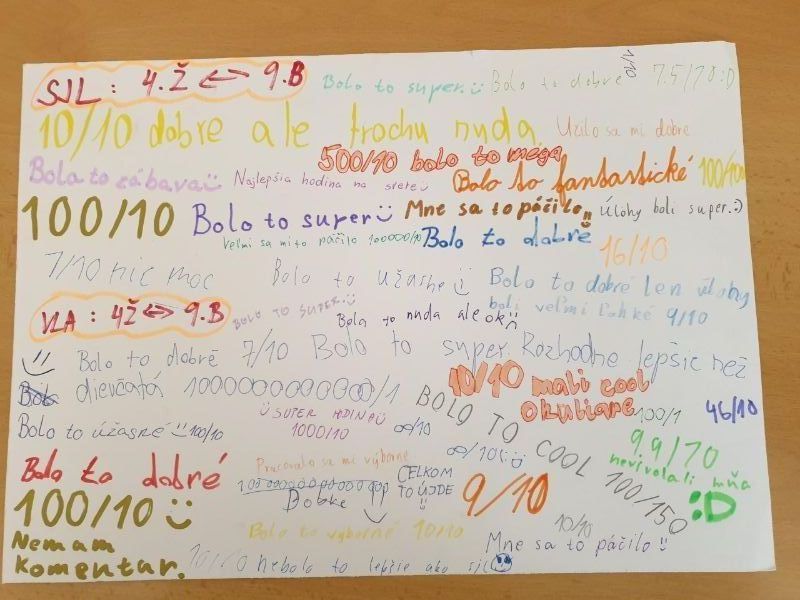 SJL : 4.Ž ↔ 9.B
Bolo to super.
Bolo to dobré
1/10
7.5/10 :D
10/10 dobré ale trochu nuda
Učilo sa mi dobre
500/10 bolo to mega
Bola to zábava
Najlepšia hodina na svete
Bolo to fantastické
100/10
Bolo to super
Mne sa to páčilo
Úlohy boli super. :)
Veľmi sa mi to páčilo 1000000/10
Bolo to dobré
16/10
7/10 nic moc
Bolo to užasne
Bolo to dobré len úlohy
boli veľmi ľahké 9/10
VLA : 4Ž ↔ 9.B
BOLO TO SUPER.
Bola to nuda ale ok
Bolo to dobré 7/10
Bolo to super. Rozhodne lepšie než
dievčatá
10/10 mali cool
okuliare
100/1
46/10
SUPER HODINA
1000/10
∞/10
BOLO TO COOL 100/150
Bolo to úžasné 100/10
∞/10
9.9/10
nevivolali mňa
:D
Bolo to dobré
Pracovalo sa mi výborne
CELKOM
TO UJDE
9/10
Dobke
100/10
Bolo to výborné 10/10
10/10
Mne sa to páčilo
Nemam
komentar.
10/10 nebolo to lepšie ako sjl